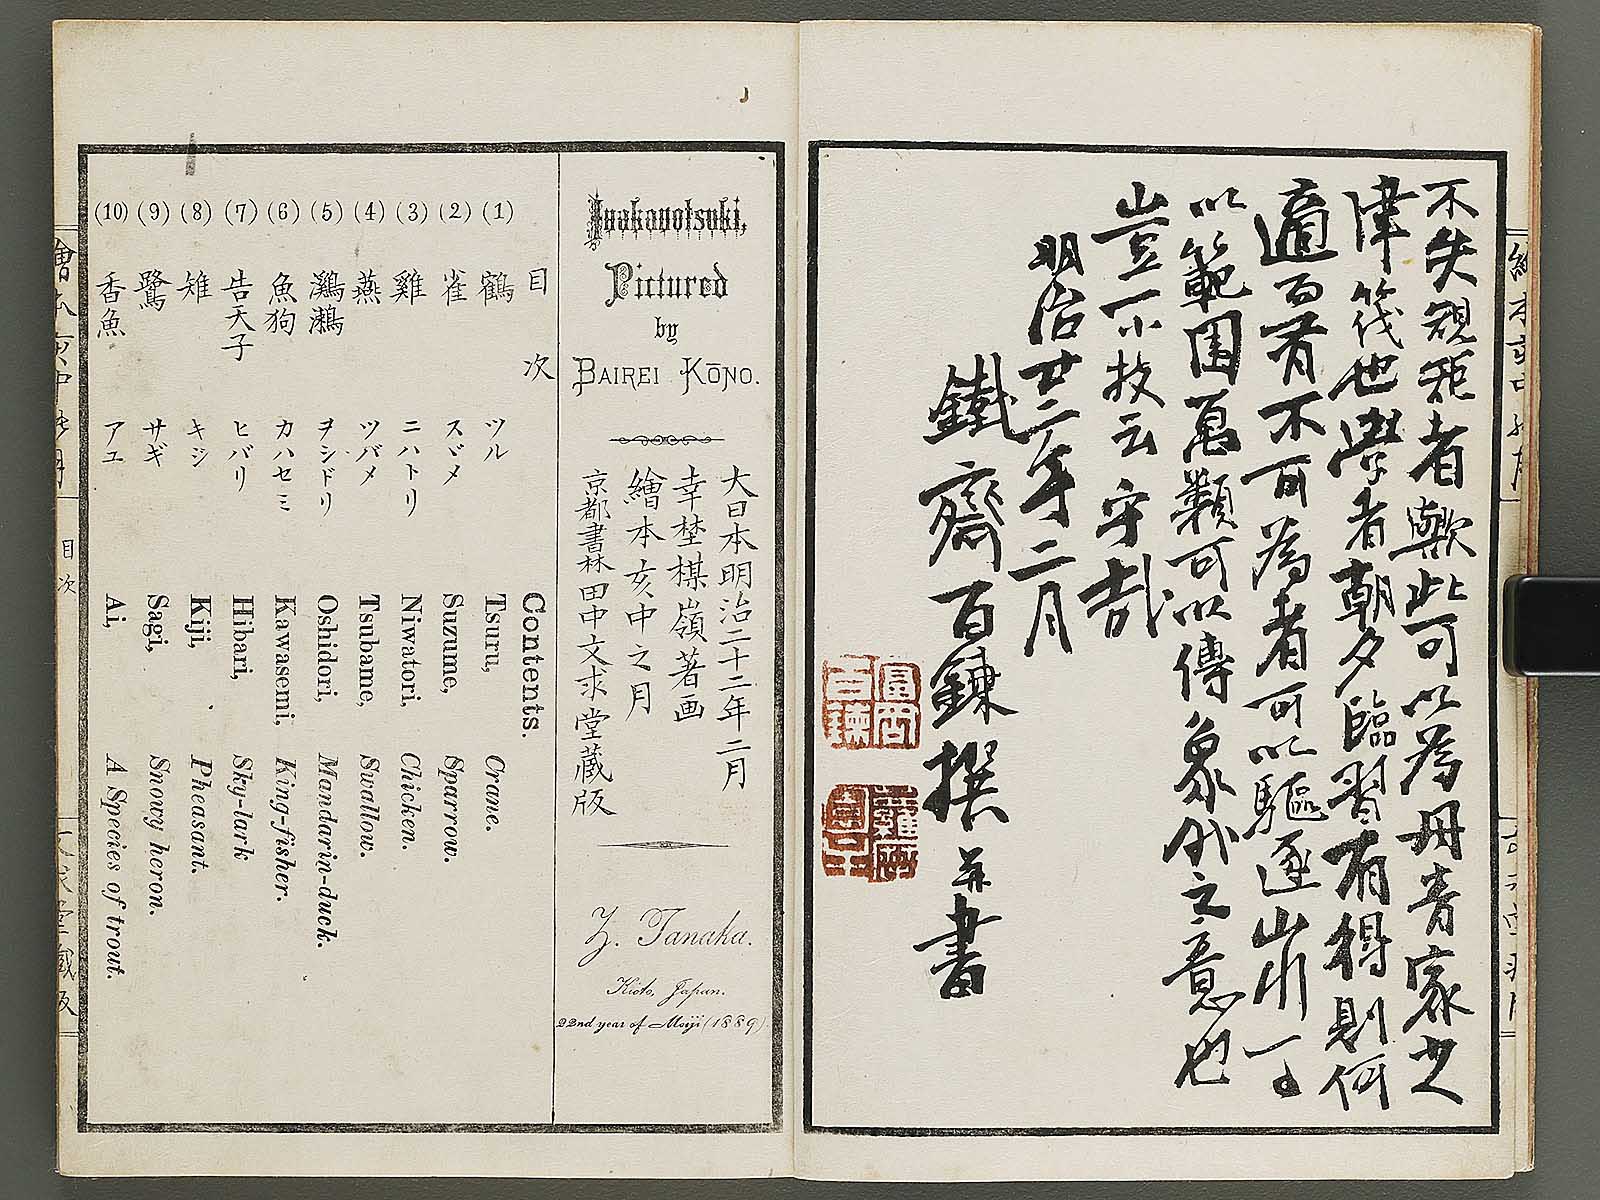 不失規矩者歟此可以為丹青家之
津筏也學者朝夕臨習有得則何
適而不可為者可以驅逐山川
以範圍萬類可以傳象外之意也
豈一小技云乎哉
明治廿二年二月
鐵齋百鍊撰并書
Inakanotsuki,
Pictured
by
BAIREI KŌNO.
大日本明治二十二年二月
幸埜楳嶺著画
繪本亥中之月
京都書林田中文求堂蔵版
Z. Tanaka.
Kioto, Japan.
22nd year of Meiji (1889)
目次 Contents.
(1) 鶴 ツル Tsuru, Crane.
(2) 雀 スヾメ Suzume, Sparrow.
(3) 雞 ニハトリ Niwatori, Chicken.
(4) 燕 ツバメ Tsubame, Swallow.
(5) 鸂鶒 ヲシドリ Oshidori, Mandarin-duck.
(6) 魚狗 カハセミ Kawasemi, King-fisher.
(7) 告天子 ヒバリ Hibari, Sky-lark
(8) 雉 キジ Kiji, Pheasant.
(9) 鷺 サギ Sagi, Snowy heron.
(10) 香魚 アユ Ai, A Species of trout.
目次